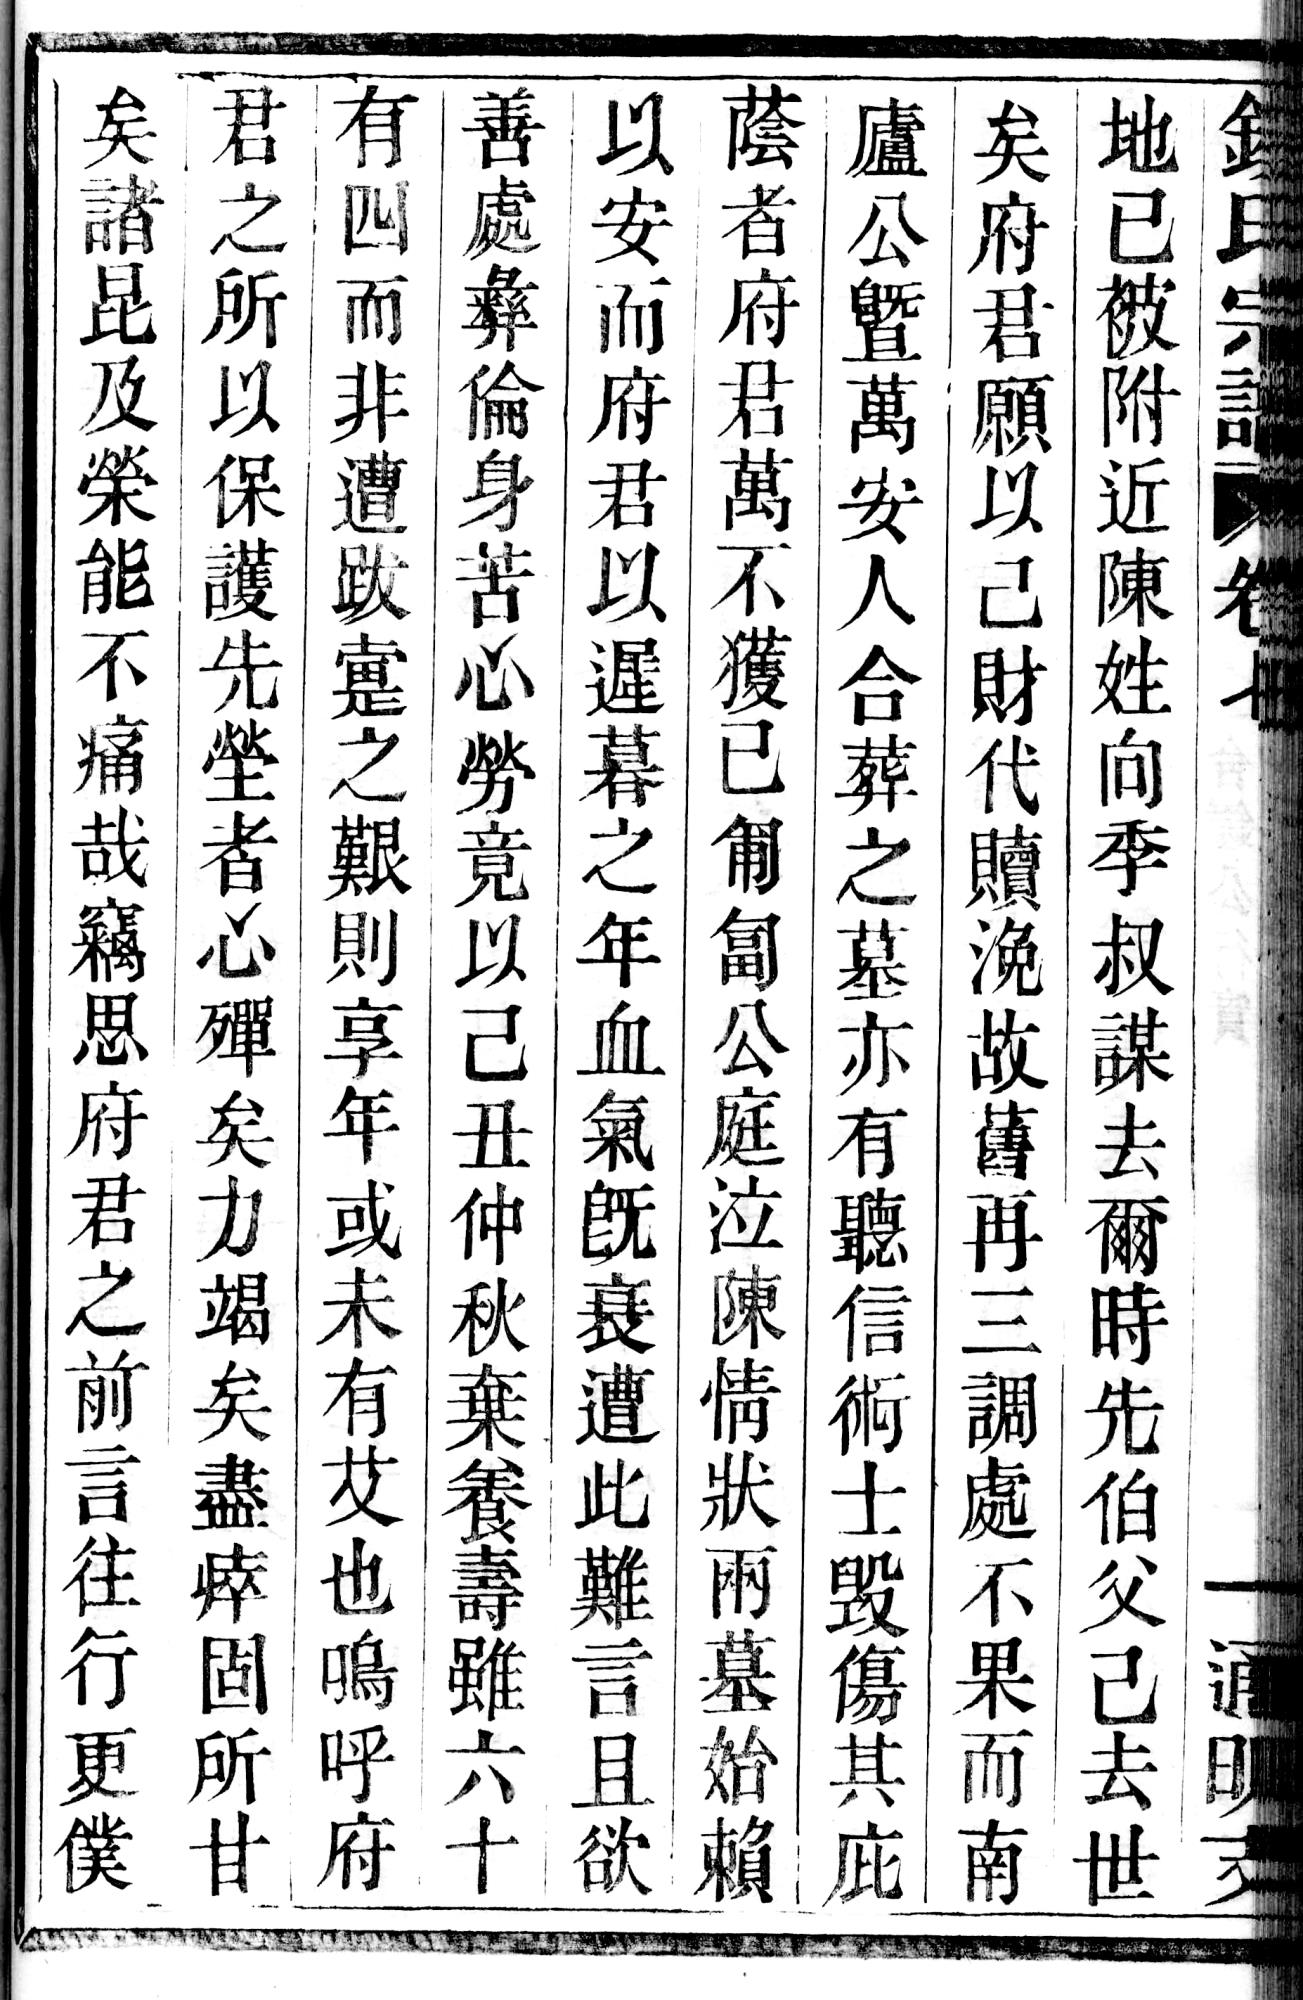 錢氏宗譜 卷七 一 通明支
地已被附近陳姓向季叔謀去爾時先伯父己去世
矣府君願以己財代贖浼故舊再三調處不果而南
廬公曁萬安人合葬之墓亦有聽信術士毀傷其庇
蔭者府君萬不獲已匍匐公庭泣陳情狀兩墓始賴
以安而府君以遲暮之年血氣旣衰遭此難言且欲
善處彝倫身苦心勞竟以己丑仲秋棄養壽雖六十
有四而非遭跋疐之艱則享年或未有艾也嗚呼府
君之所以保護先塋者心殫矣力竭矣盡瘁固所甘
矣諸昆及榮能不痛哉竊思府君之前言往行更僕